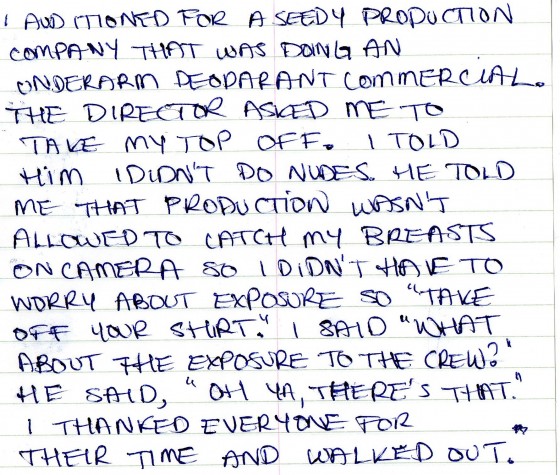 I AUDITIONED FOR A SEEDY PRODUCTION
COMPANY THAT WAS DOING AN
UNDERARM DEODARANT COMMERCIAL.
THE DIRECTOR ASKED ME TO
TAKE MY TOP OFF. I TOLD
HIM I DIDN'T DO NUDES. HE TOLD
ME THAT PRODUCTION WASN'T
ALLOWED TO CATCH MY BREASTS
ON CAMERA SO I DIDN'T HAVE TO
WORRY ABOUT EXPOSURE SO "TAKE
OFF YOUR SHIRT." I SAID "WHAT
ABOUT THE EXPOSURE TO THE CREW?"
HE SAID, "OH YA, THERE'S THAT."
I THANKED EVERYONE FOR
THEIR TIME AND WALKED OUT.